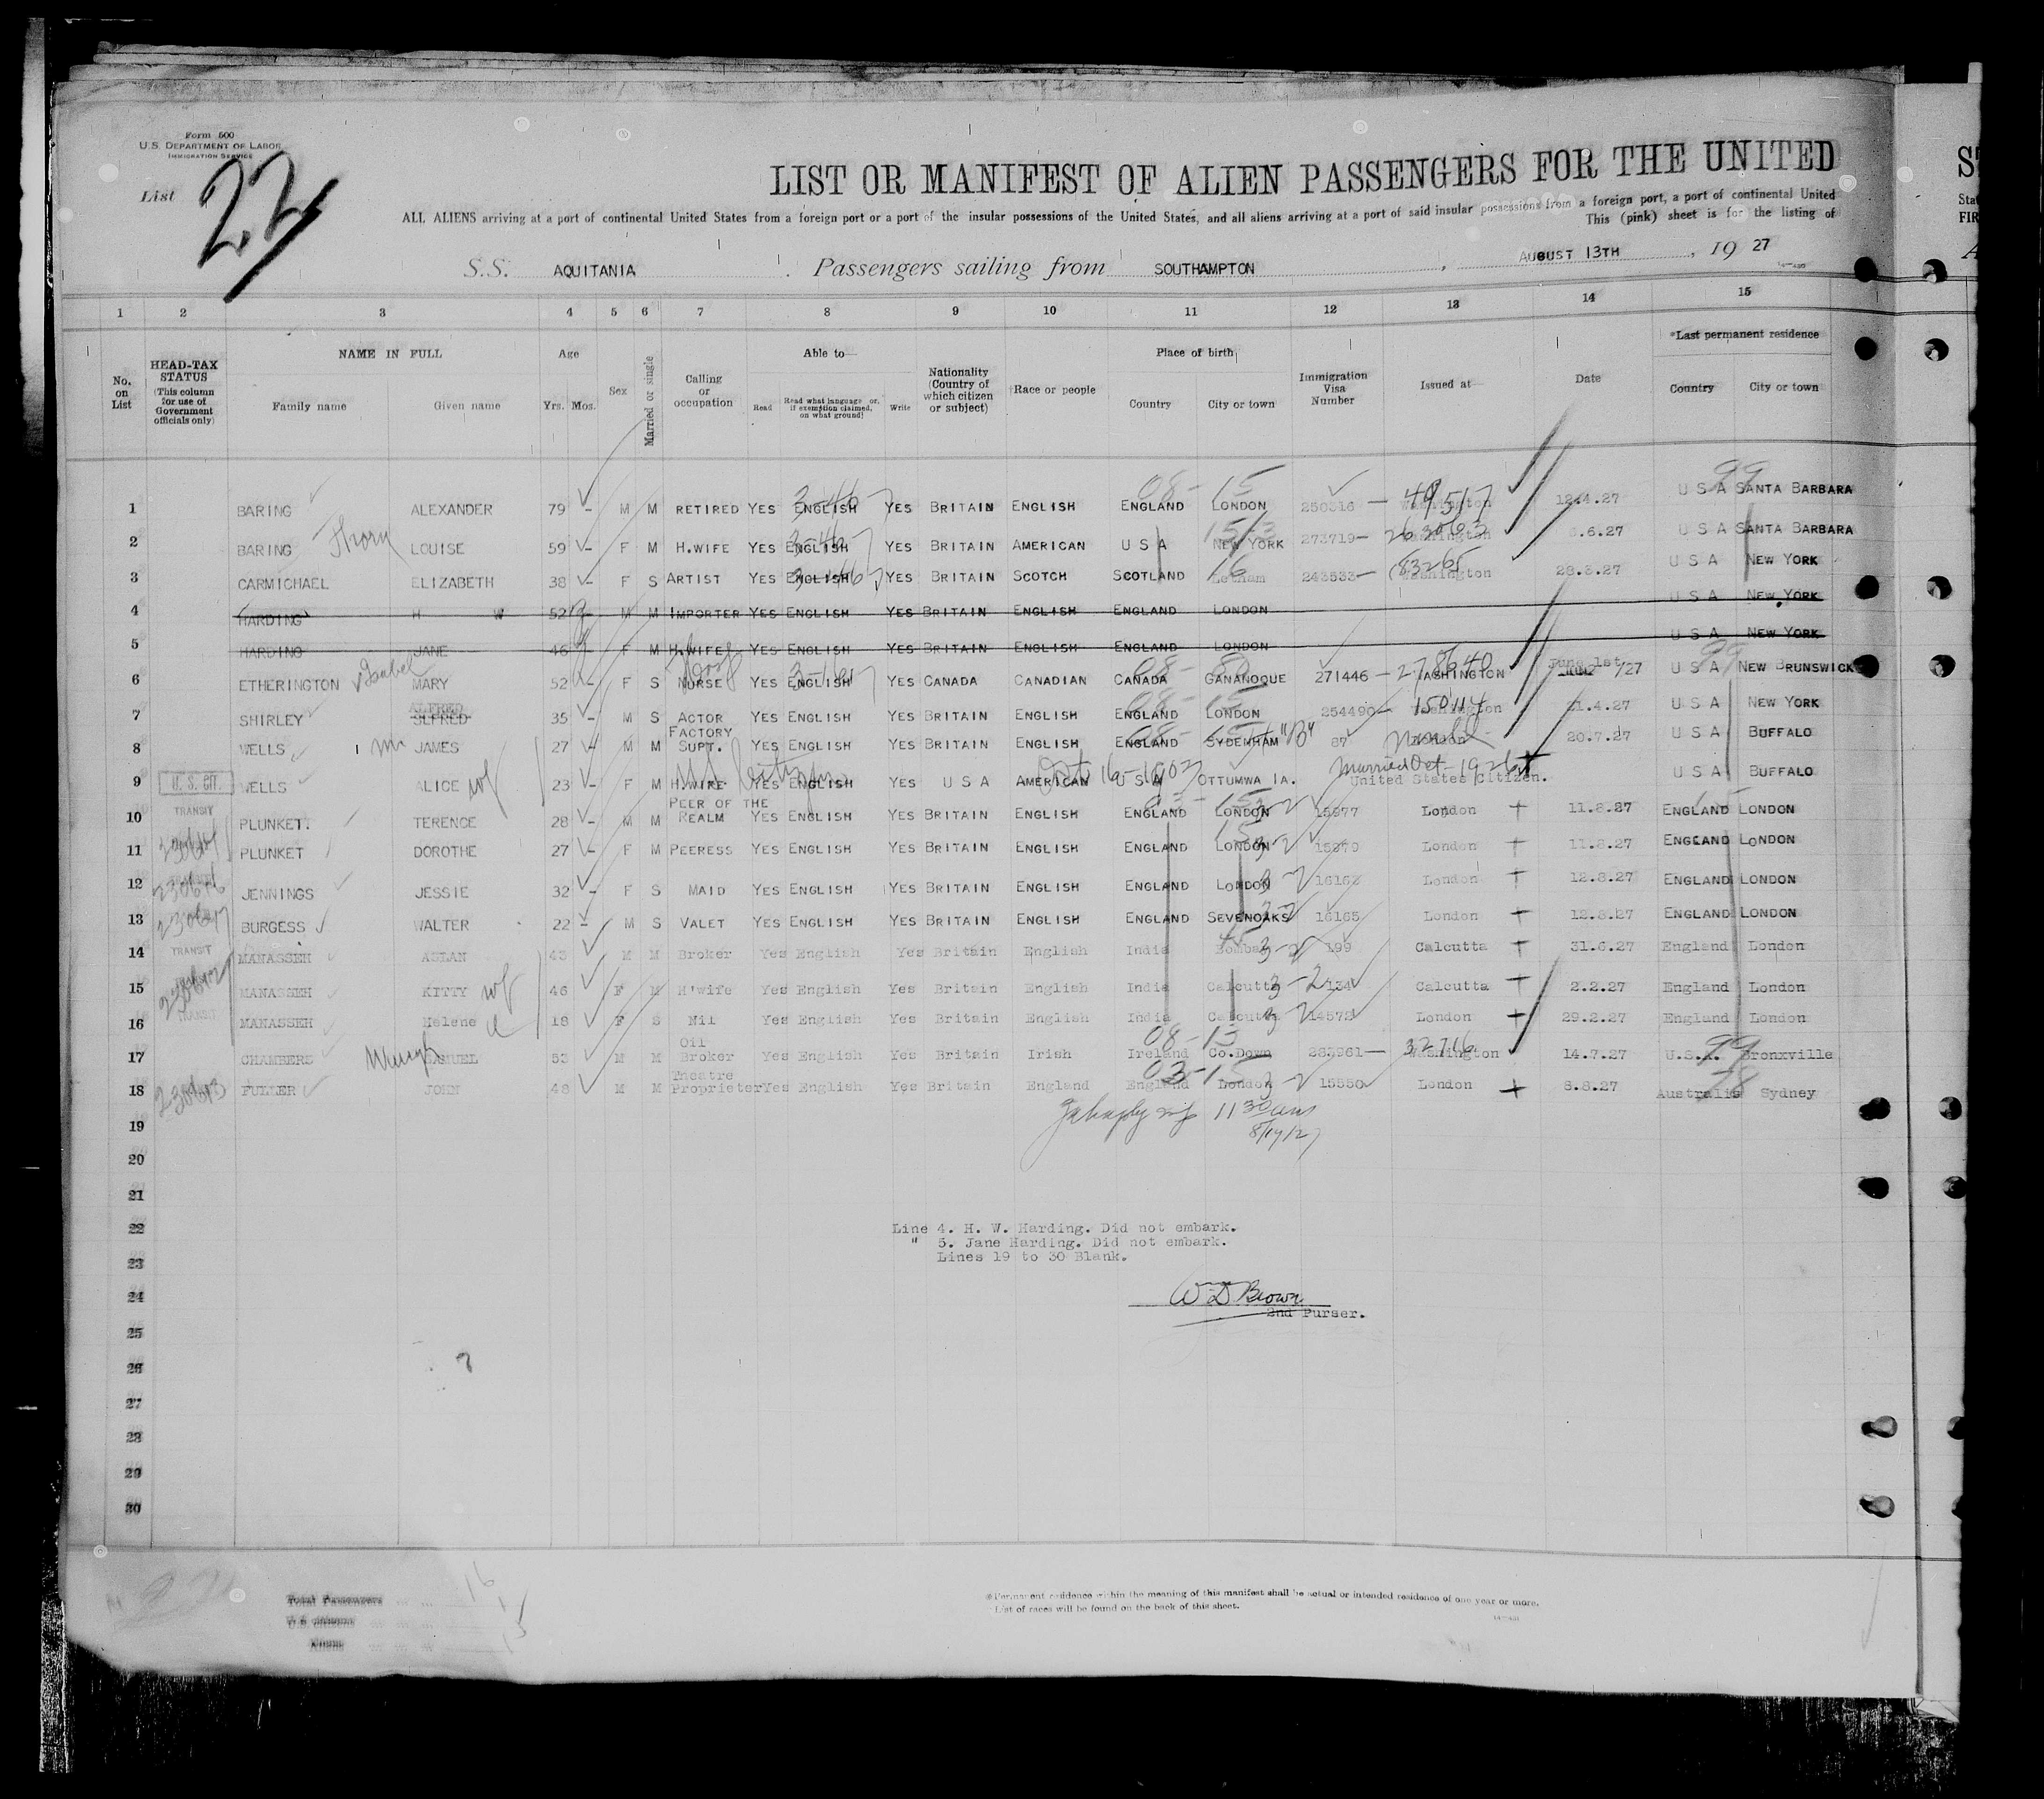 Form 500
U.S. DEPARTMENT OF LABOR
IMMIGRATION SERVICE
List 22
LIST OR MANIFEST OF ALIEN PASSENGERS FOR THE UNITED
ALL ALIENS arriving at a port of continental United States from a foreign port or a port of the insular possessions of the United States, and all aliens arriving at a port of said insular possessions from a foreign port, a port of continental United
This (pink) sheet is for the listing of
S.S. AQUITANIA Passengers sailing from SOUTHAMPTON, AUGUST 13TH, 19 27
1 2 3 4 5 6 7 8 9 10 11 12 13 14 15
No. on List
HEAD-TAX STATUS (This column for use of Government officials only)
NAME IN FULL Family name Given name
Age Yrs. Mos.
Sex
Married or single
Calling or occupation
Able to— Read Read what language or, if exemption claimed, on what ground) Write
Nationality (Country of which citizen or subject)
Race or people
Place of birth Country City or town
Immigration Visa Number
Issued at—
Date
*Last permanent residence Country City or town
1 BARING ALEXANDER 79 - M M RETIRED YES ENGLISH YES BRITAIN ENGLISH ENGLAND LONDON 250316 — Washington 12.4.27 U S A SANTA BARBARA
2 BARING LOUISE 59 - F M H.WIFE YES ENGLISH YES BRITAIN AMERICAN U S A NEW YORK 273719 — Washington 6.6.27 U S A SANTA BARBARA
3 CARMICHAEL ELIZABETH 38 - F S ARTIST YES ENGLISH YES BRITAIN SCOTCH SCOTLAND Letham 243533 — Washington 28.3.27 U S A NEW YORK
4 HARDING H W 52 - M M IMPORTER YES ENGLISH YES BRITAIN ENGLISH ENGLAND LONDON U S A NEW YORK
5 HARDING JANE 46 F M H.WIFE YES ENGLISH YES BRITAIN ENGLISH ENGLAND LONDON U S A NEW YORK
6 ETHERINGTON Isabel MARY 52 - F S NURSE YES ENGLISH YES CANADA CANADIAN CANADA GANANOQUE 271446 — WASHINGTON June 1st /27 U S A NEW BRUNSWICK
7 SHIRLEY ALFRED 35 - M S ACTOR YES ENGLISH YES BRITAIN ENGLISH ENGLAND LONDON 254490 — 150114 Washington 21.4.27 U S A NEW YORK
8 WELLS JAMES 27 - M M FACTORY SUPT. YES ENGLISH YES BRITAIN ENGLISH ENGLAND SYDENHAM "B" 87 London 20.7.27 U S A BUFFALO
9 U. S. CIT. WELLS ALICE wf 23 - F M H.WIFE YES ENGLISH YES U S A AMERICAN U S A OTTUMWA IA. Married Oct - 1926 United States Citizen. U S A BUFFALO
10 TRANSIT PLUNKET. TERENCE 28 - M M PEER OF THE REALM YES ENGLISH YES BRITAIN ENGLISH ENGLAND LONDON 15977 London 11.8.27 ENGLAND LONDON
11 PLUNKET DOROTHE 27 - F M PEERESS YES ENGLISH YES BRITAIN ENGLISH ENGLAND LONDON London 11.8.27 ENGLAND LONDON
12 JENNINGS JESSIE 32 - F S MAID YES ENGLISH YES BRITAIN ENGLISH ENGLAND LONDON 16162 London 12.8.27 ENGLAND LONDON
13 BURGESS WALTER 22 - M S VALET YES ENGLISH YES BRITAIN ENGLISH ENGLAND SEVENOAKS 16165 London 12.8.27 ENGLAND LONDON
14 TRANSIT MANASSEH ASLAN 43 M M Broker Yes English Yes Britain English India Bombay 199 Calcutta 31.6.27 England London
15 MANASSEH KITTY wf 46 F M H'wife Yes English Yes Britain English India Calcutta 134 Calcutta 2.2.27 England London
16 TRANSIT MANASSEH Helene 18 F S Nil Yes English Yes Britain English India Calcutta 14572 London 29.2.27 England London
17 CHAMBERS SAMUEL 53 M M Oil Broker Yes English Yes Britain Irish Ireland Co.Down 283961 — 32716 Washington 14.7.27 U.S.A. Bronxville
18 FULLER JOHN 48 M M Theatre Proprietor Yes English Yes Britain England England London 15550 London 8.8.27 Australia Sydney
19
20
21
22
23
24
25
26
27
28
29
30
Line 4. H. W. Harding. Did not embark.
" 5. Jane Harding. Did not embark.
Lines 19 to 30 Blank.
W D Brown
2nd Purser.
Total Passengers 16
U.S Citizens 1
Aliens 15
*Permanent residence within the meaning of this manifest shall be actual or intended residence of one year or more.
List of races will be found on the back of this sheet.